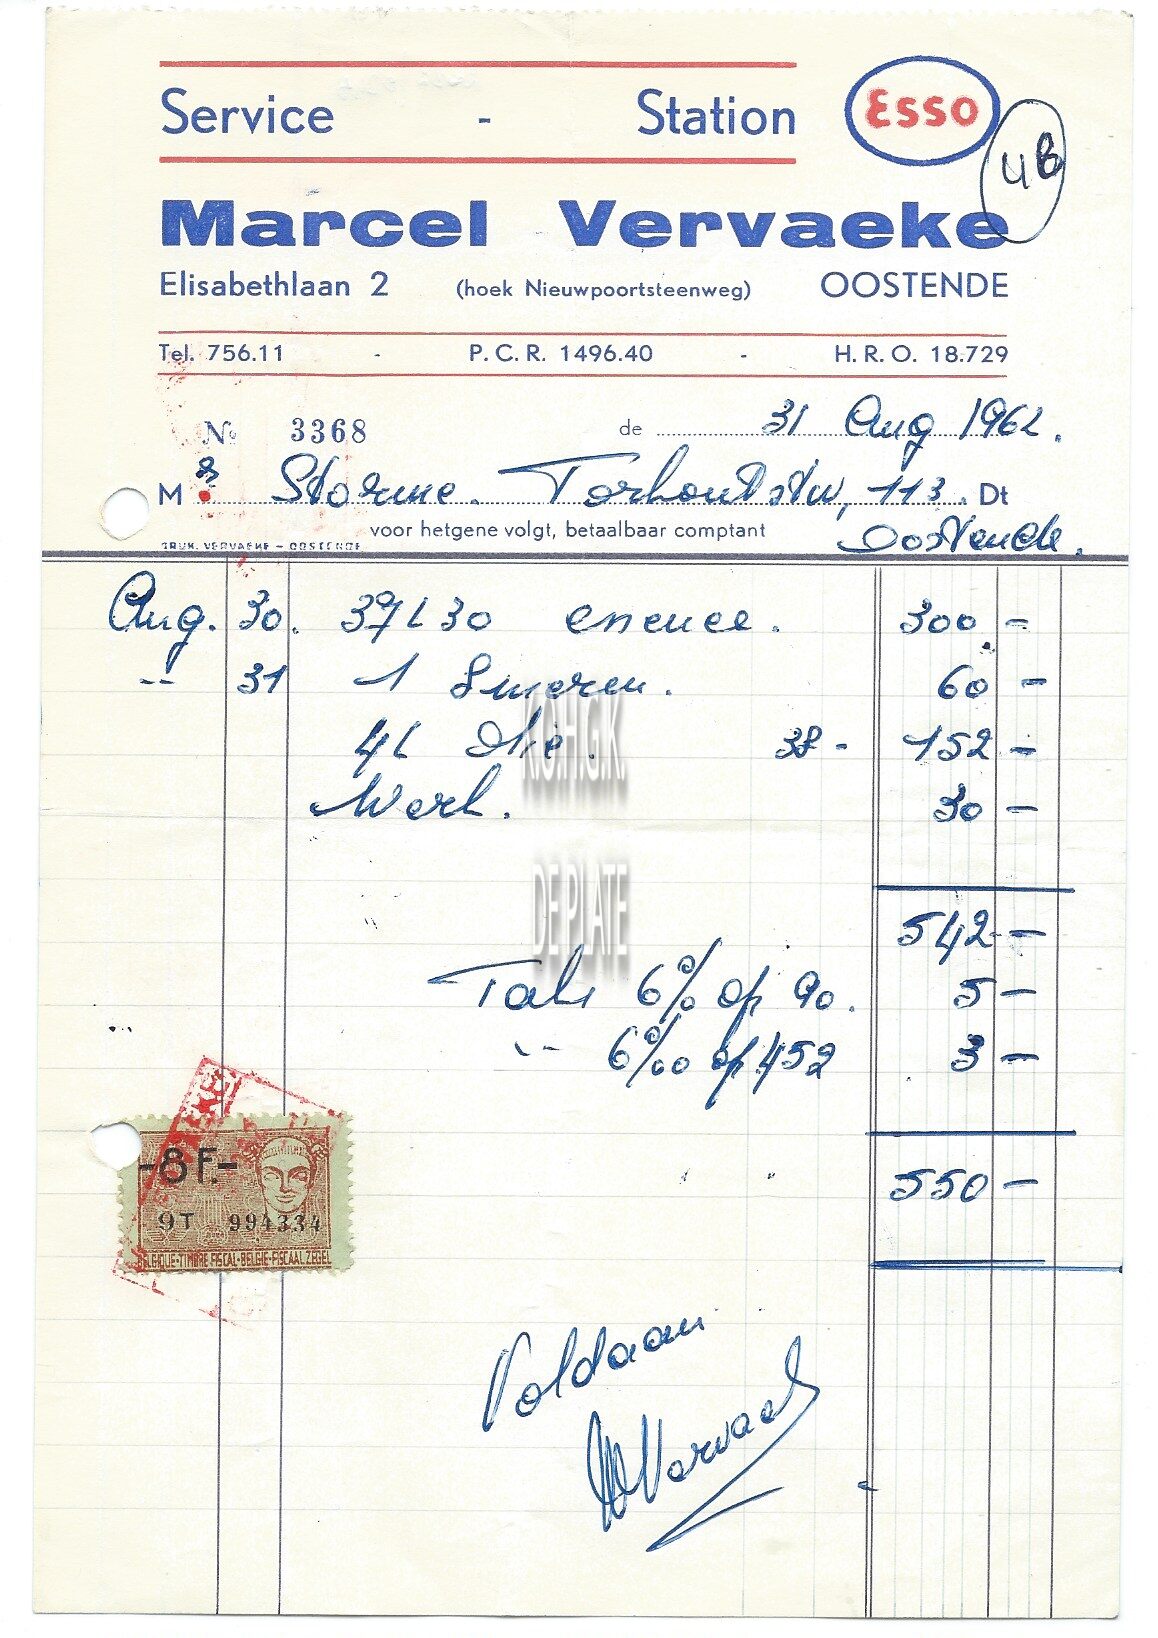 Service - Station Esso
4B
Marcel Vervaeke
Elisabethlaan 2 (hoek Nieuwpoortsteenweg) OOSTENDE
Tel. 756.11 - P.C.R. 1496.40 - H.R.O. 18.729
No 3368 de 31 Aug 1962.
M Storme. Torhoutstw, 113. Dt
voor hetgene volgt, betaalbaar comptant Oostende.
DRUK. VERVAEKE - OOSTENDE
Aug. 30. 37L30 essence. 300 -
-- 31 1 Smeren. 60 -
4L Olie. 38 - 152 -
Werk. 30 -
K.O.H.G.K.
DE PLATE
542 -
Taks 6% op 90. 5 -
-- 6‰ op 452 3 -
-8 F.-
9T 994334
BELGIQUE-TIMBRE FISCAL-BELGIE-FISCAAL ZEGEL
" " 550 -
Voldaan
MVervaeke